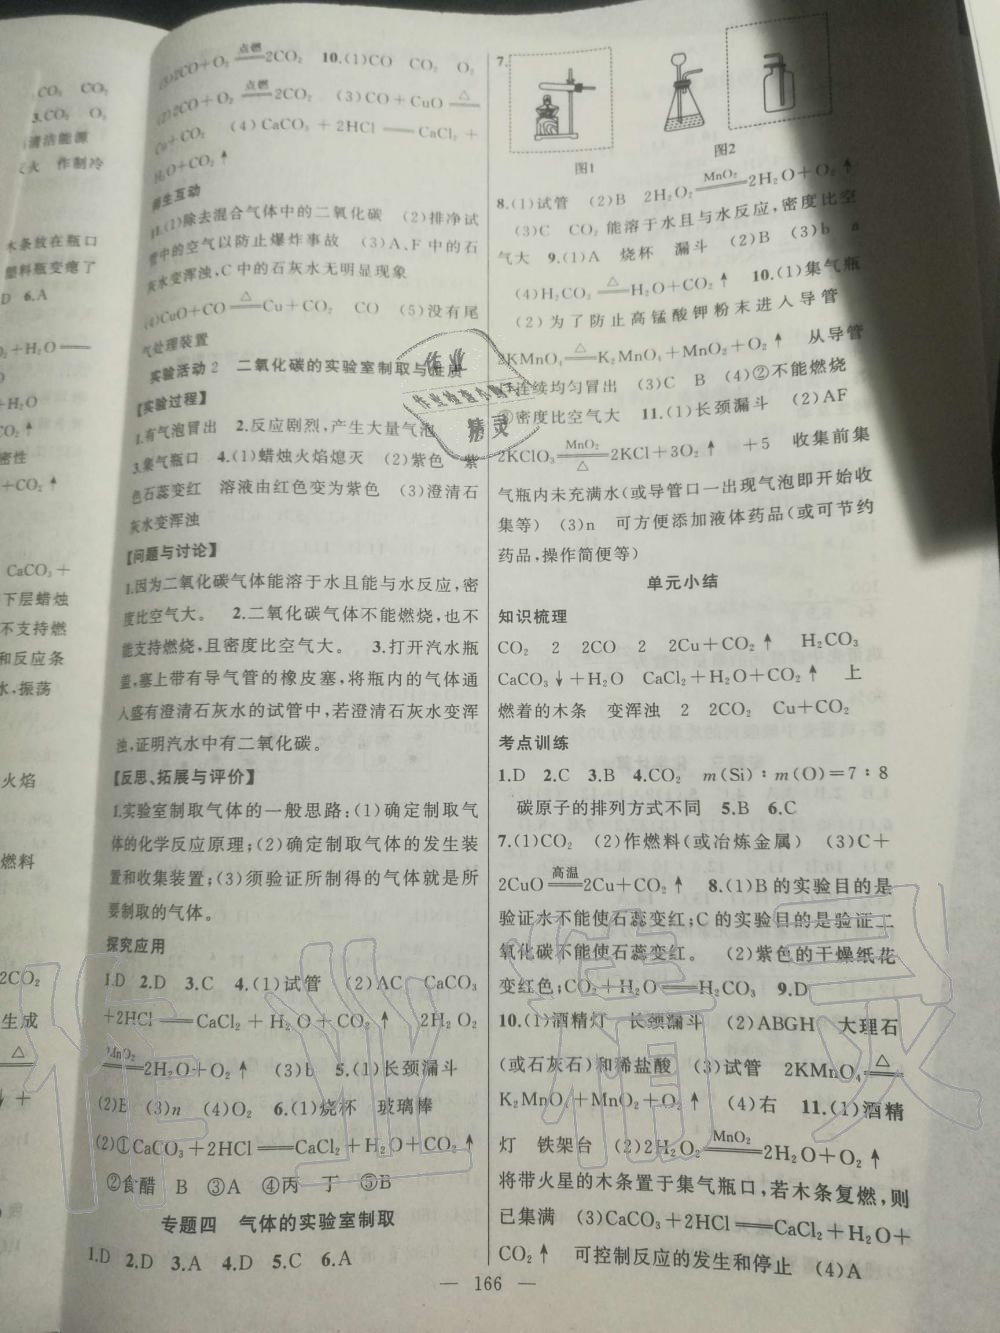 CO₂ CO₂
3.CO₂ O₂
清洁能源
火 作制冷
木条放在瓶口
塑料瓶变瘪了
D 6.A
₂+H₂O══
+H₂O
CO₂↑
密性
+CO₂↑
CaCO₃+
下层蜡烛
不支持燃
和反应条
水,振荡
火焰
燃料
2CO₂
生成
△
↓+
2CO+O₂ 点燃══ 2CO₂ 10.(1)CO CO₂ O₂
(2)2CO+O₂ 点燃══ 2CO₂ (3)CO+CuO △══
Cu+CO₂ (4)CaCO₃+2HCl══CaCl₂+
H₂O+CO₂↑
师生互动
11.(1)除去混合气体中的二氧化碳 (2)排净试
管中的空气以防止爆炸事故 (3)A、F中的石
灰水变浑浊,C中的石灰水无明显现象
(4)CuO+CO △══ Cu+CO₂ CO (5)没有尾
气处理装置
实验活动2 二氧化碳的实验室制取与性质
【实验过程】
1.有气泡冒出 2.反应剧烈,产生大量气泡
3.集气瓶口 4.(1)蜡烛火焰熄灭 (2)紫色 紫
色石蕊变红 溶液由红色变为紫色 (3)澄清石
灰水变浑浊
【问题与讨论】
1.因为二氧化碳气体能溶于水且能与水反应,密
度比空气大。 2.二氧化碳气体不能燃烧,也不
能支持燃烧,且密度比空气大。 3.打开汽水瓶
盖,塞上带有导气管的橡皮塞,将瓶内的气体通
入盛有澄清石灰水的试管中,若澄清石灰水变浑
浊,证明汽水中有二氧化碳。
【反思、拓展与评价】
1.实验室制取气体的一般思路:(1)确定制取气
体的化学反应原理;(2)确定制取气体的发生装
置和收集装置;(3)须验证所制得的气体就是所
要制取的气体。
探究应用
1.D 2.D 3.C 4.(1)试管 (2)AC CaCO₃
+2HCl══CaCl₂+H₂O+CO₂↑ 2H₂O₂
MnO₂══ 2H₂O+O₂↑ (3)b 5.(1)长颈漏斗
(2)E (3)n (4)O₂ 6.(1)烧杯 玻璃棒
(2)①CaCO₃+2HCl══CaCl₂+H₂O+CO₂↑
②食醋 B ③A ④丙 丁 ⑤B
专题四 气体的实验室制取
1.D 2.D 3.A 4.D 5.C 6.A
7.
图1 图2
8.(1)试管 (2)B 2H₂O₂ MnO₂══ 2H₂O+O₂↑
(3)C CO₂能溶于水且与水反应,密度比空
气大 9.(1)A 烧杯 漏斗 (2)B (3)b a
(4)H₂CO₃ △══ H₂O+CO₂↑ 10.(1)集气瓶
(2)为了防止高锰酸钾粉末进入导管
2KMnO₄ △══ K₂MnO₄+MnO₂+O₂↑ 从导管
口连续均匀冒出 (3)C B (4)②不能燃烧
③密度比空气大 11.(1)长颈漏斗 (2)AF
2KClO₃ MnO₂══△ 2KCl+3O₂↑ +5 收集前集
气瓶内未充满水(或导管口一出现气泡即开始收
集等) (3)n 可方便添加液体药品(或可节约
药品,操作简便等)
单元小结
知识梳理
CO₂ 2 2CO 2 2Cu+CO₂↑ H₂CO₃
CaCO₃↓+H₂O CaCl₂+H₂O+CO₂↑ 上
燃着的木条 变浑浊 2 2CO₂ Cu+CO₂
考点训练
1.D 2.C 3.B 4.CO₂ m(Si)∶m(O)=7∶8
碳原子的排列方式不同 5.B 6.C
7.(1)CO₂ (2)作燃料(或冶炼金属) (3)C+
2CuO 高温══ 2Cu+CO₂↑ 8.(1)B的实验目的是
验证水不能使石蕊变红;C的实验目的是验证二
氧化碳不能使石蕊变红。 (2)紫色的干燥纸花
变红色;CO₂+H₂O══H₂CO₃ 9.D
10.(1)酒精灯 长颈漏斗 (2)ABGH 大理石
(或石灰石)和稀盐酸 (3)试管 2KMnO₄ △══
K₂MnO₄+MnO₂+O₂↑ (4)右 11.(1)酒精
灯 铁架台 (2)2H₂O₂ MnO₂══ 2H₂O+O₂↑
将带火星的木条置于集气瓶口,若木条复燃,则
已集满 (3)CaCO₃+2HCl══CaCl₂+H₂O+
CO₂↑ 可控制反应的发生和停止 (4)A
— 166 —
作业
作业检查小助手
精灵
作业精灵